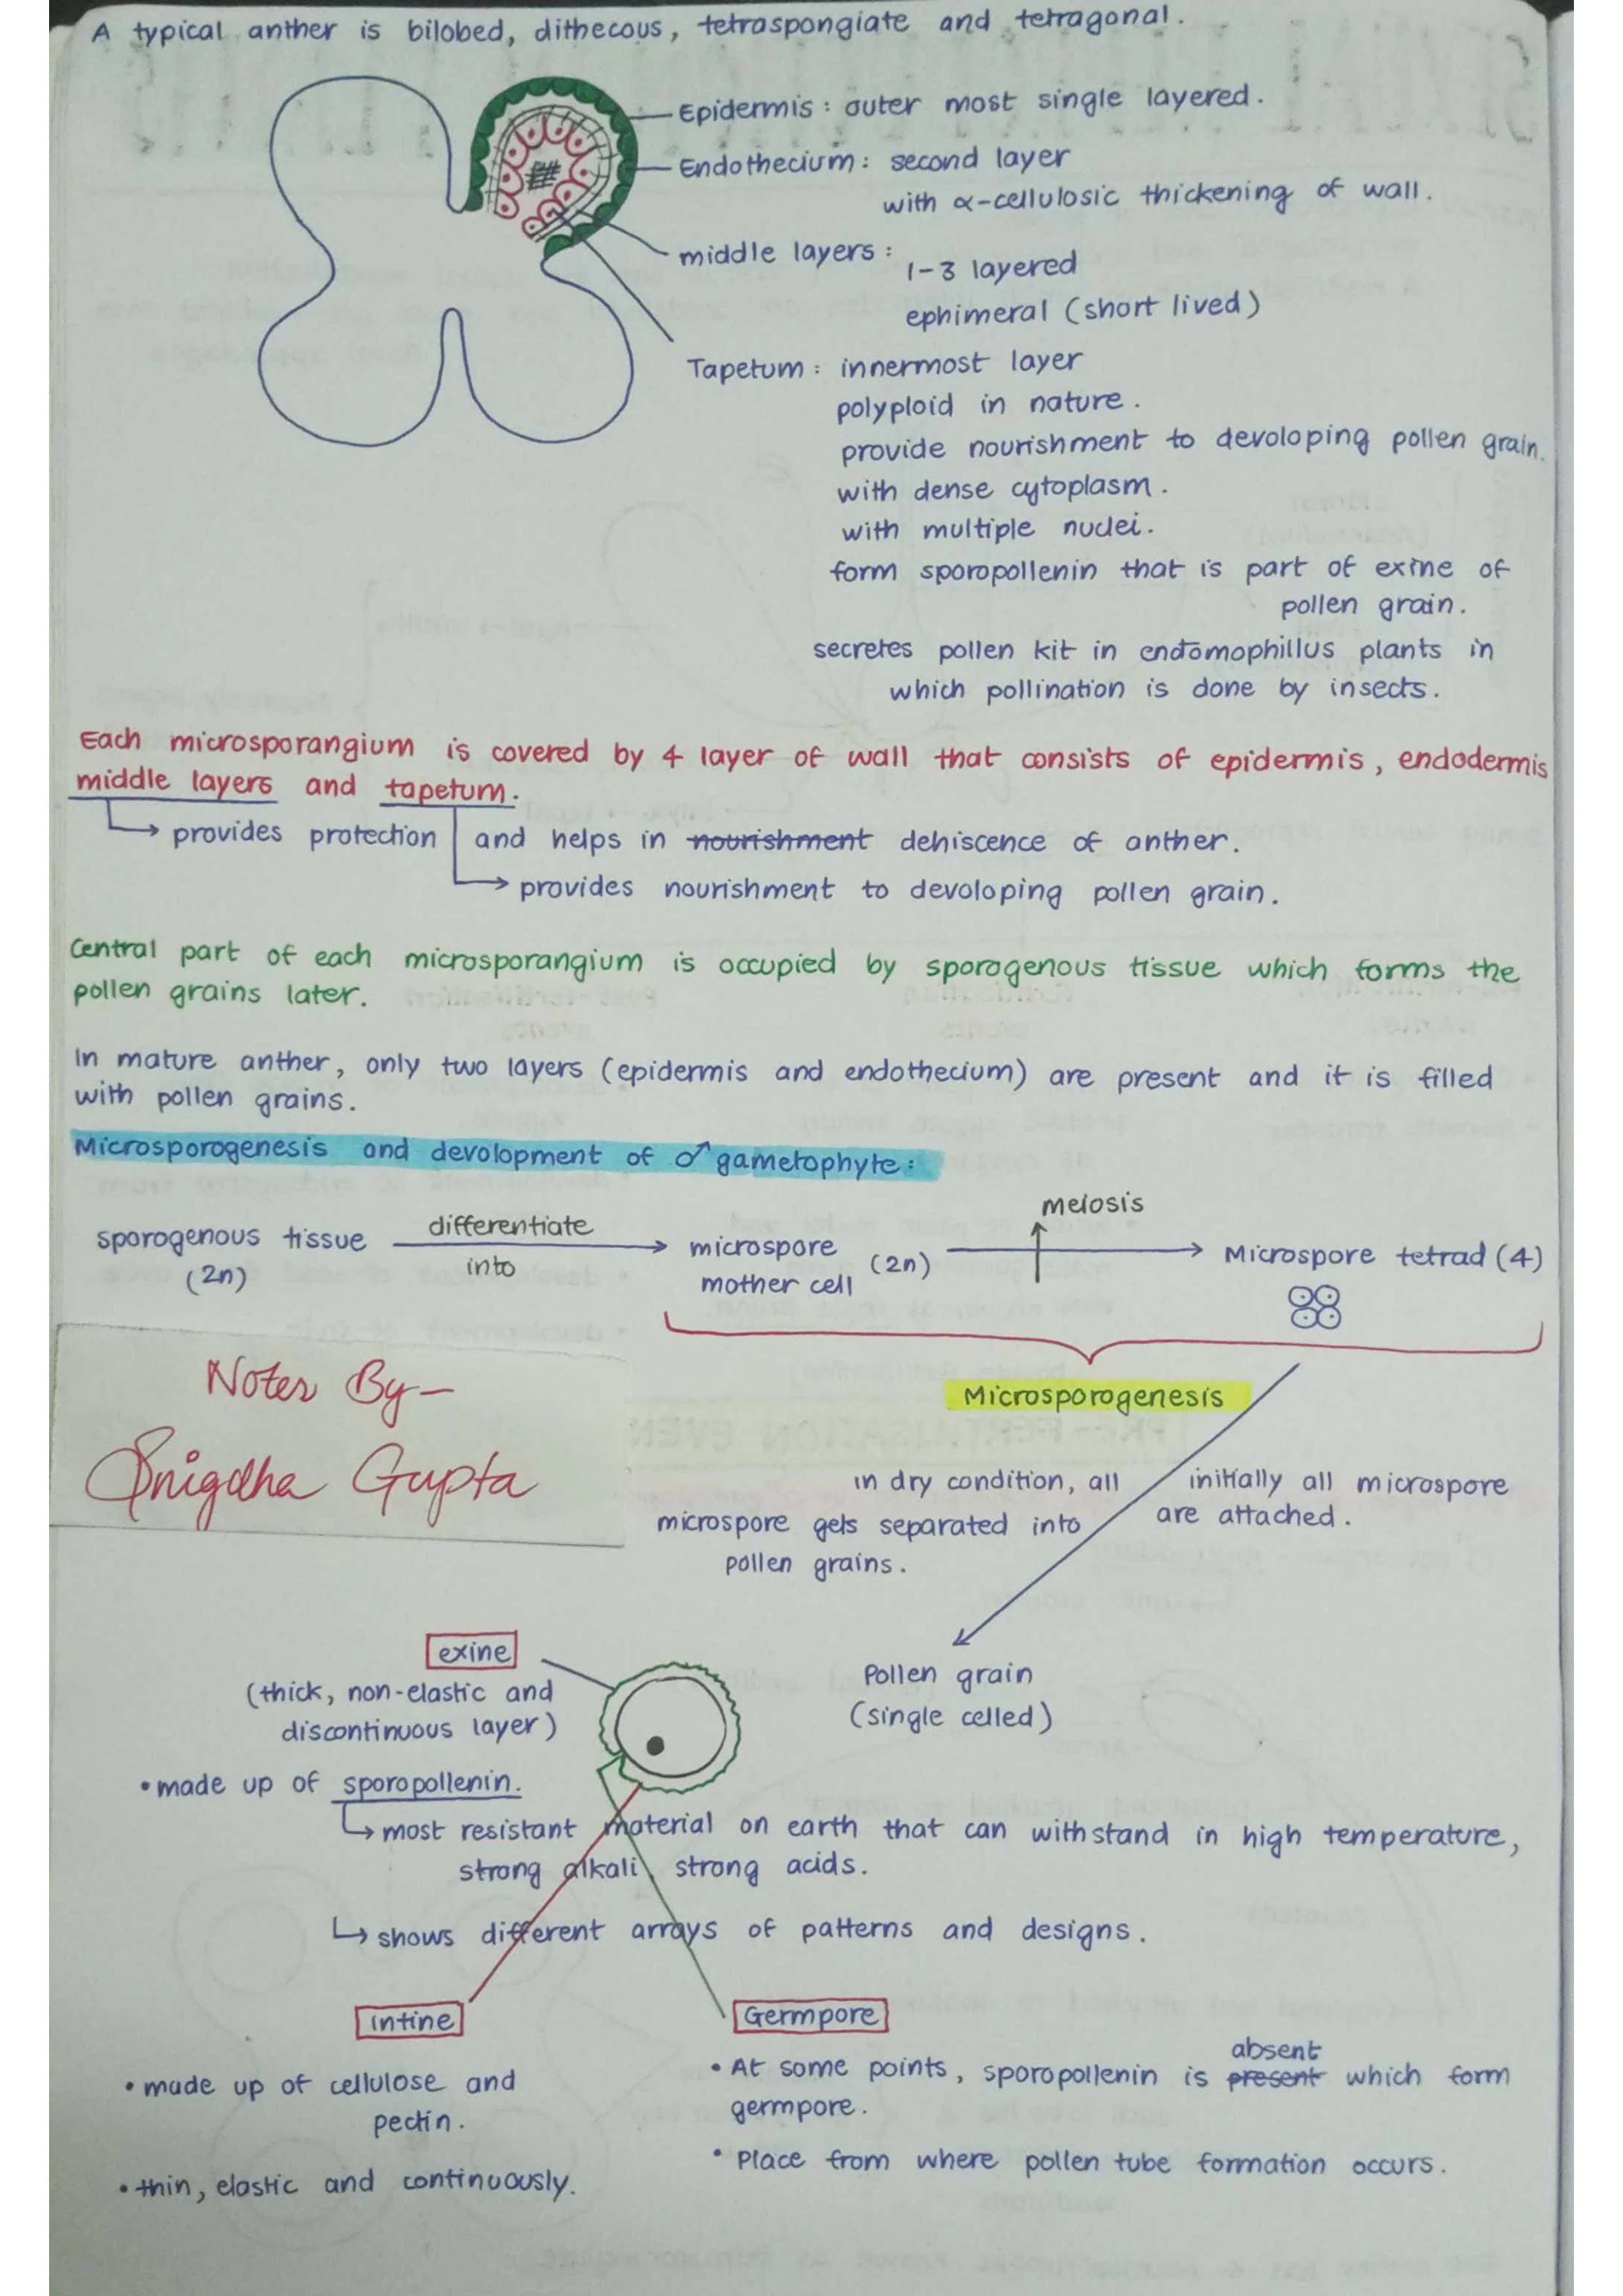 A typical anther is bilobed, dithecous, tetraspongiate and tetragonal.
Epidermis : outer most single layered.
Endothecium : second layer
with α-cellulosic thickening of wall.
middle layers :
1-3 layered
ephimeral (short lived)
Tapetum : innermost layer
polyploid in nature.
provide nourishment to devoloping pollen grain.
with dense cytoplasm.
with multiple nuclei.
form sporopollenin that is part of exine of
pollen grain.
secretes pollen kit in endomophillus plants in
which pollination is done by insects.
Each microsporangium is covered by 4 layer of wall that consists of epidermis, endodermis
middle layers and tapetum.
provides protection and helps in nourishment dehiscence of anther.
provides nourishment to devoloping pollen grain.
Central part of each microsporangium is occupied by sporogenous tissue which forms the
pollen grains later.
In mature anther, only two layers (epidermis and endothecium) are present and it is filled
with pollen grains.
Microsporogenesis and devolopment of ♂ gametophyte :
meiosis
sporogenous tissue differentiate microspore (2n) Microspore tetrad (4)
(2n) into mother cell
Notes By-
Snigdha Gupta
Microsporogenesis
in dry condition, all initially all microspore
microspore gets separated into are attached.
pollen grains.
exine
(thick, non-elastic and
discontinuous layer)
Pollen grain
(single celled)
• made up of sporopollenin.
most resistant material on earth that can withstand in high temperature,
strong alkali, strong acids.
shows different arrays of patterns and designs.
Intine
Germpore
• made up of cellulose and
pectin.
• thin, elastic and continuously.
absent
• At some points, sporopollenin is present which form
germpore.
• Place from where pollen tube formation occurs.